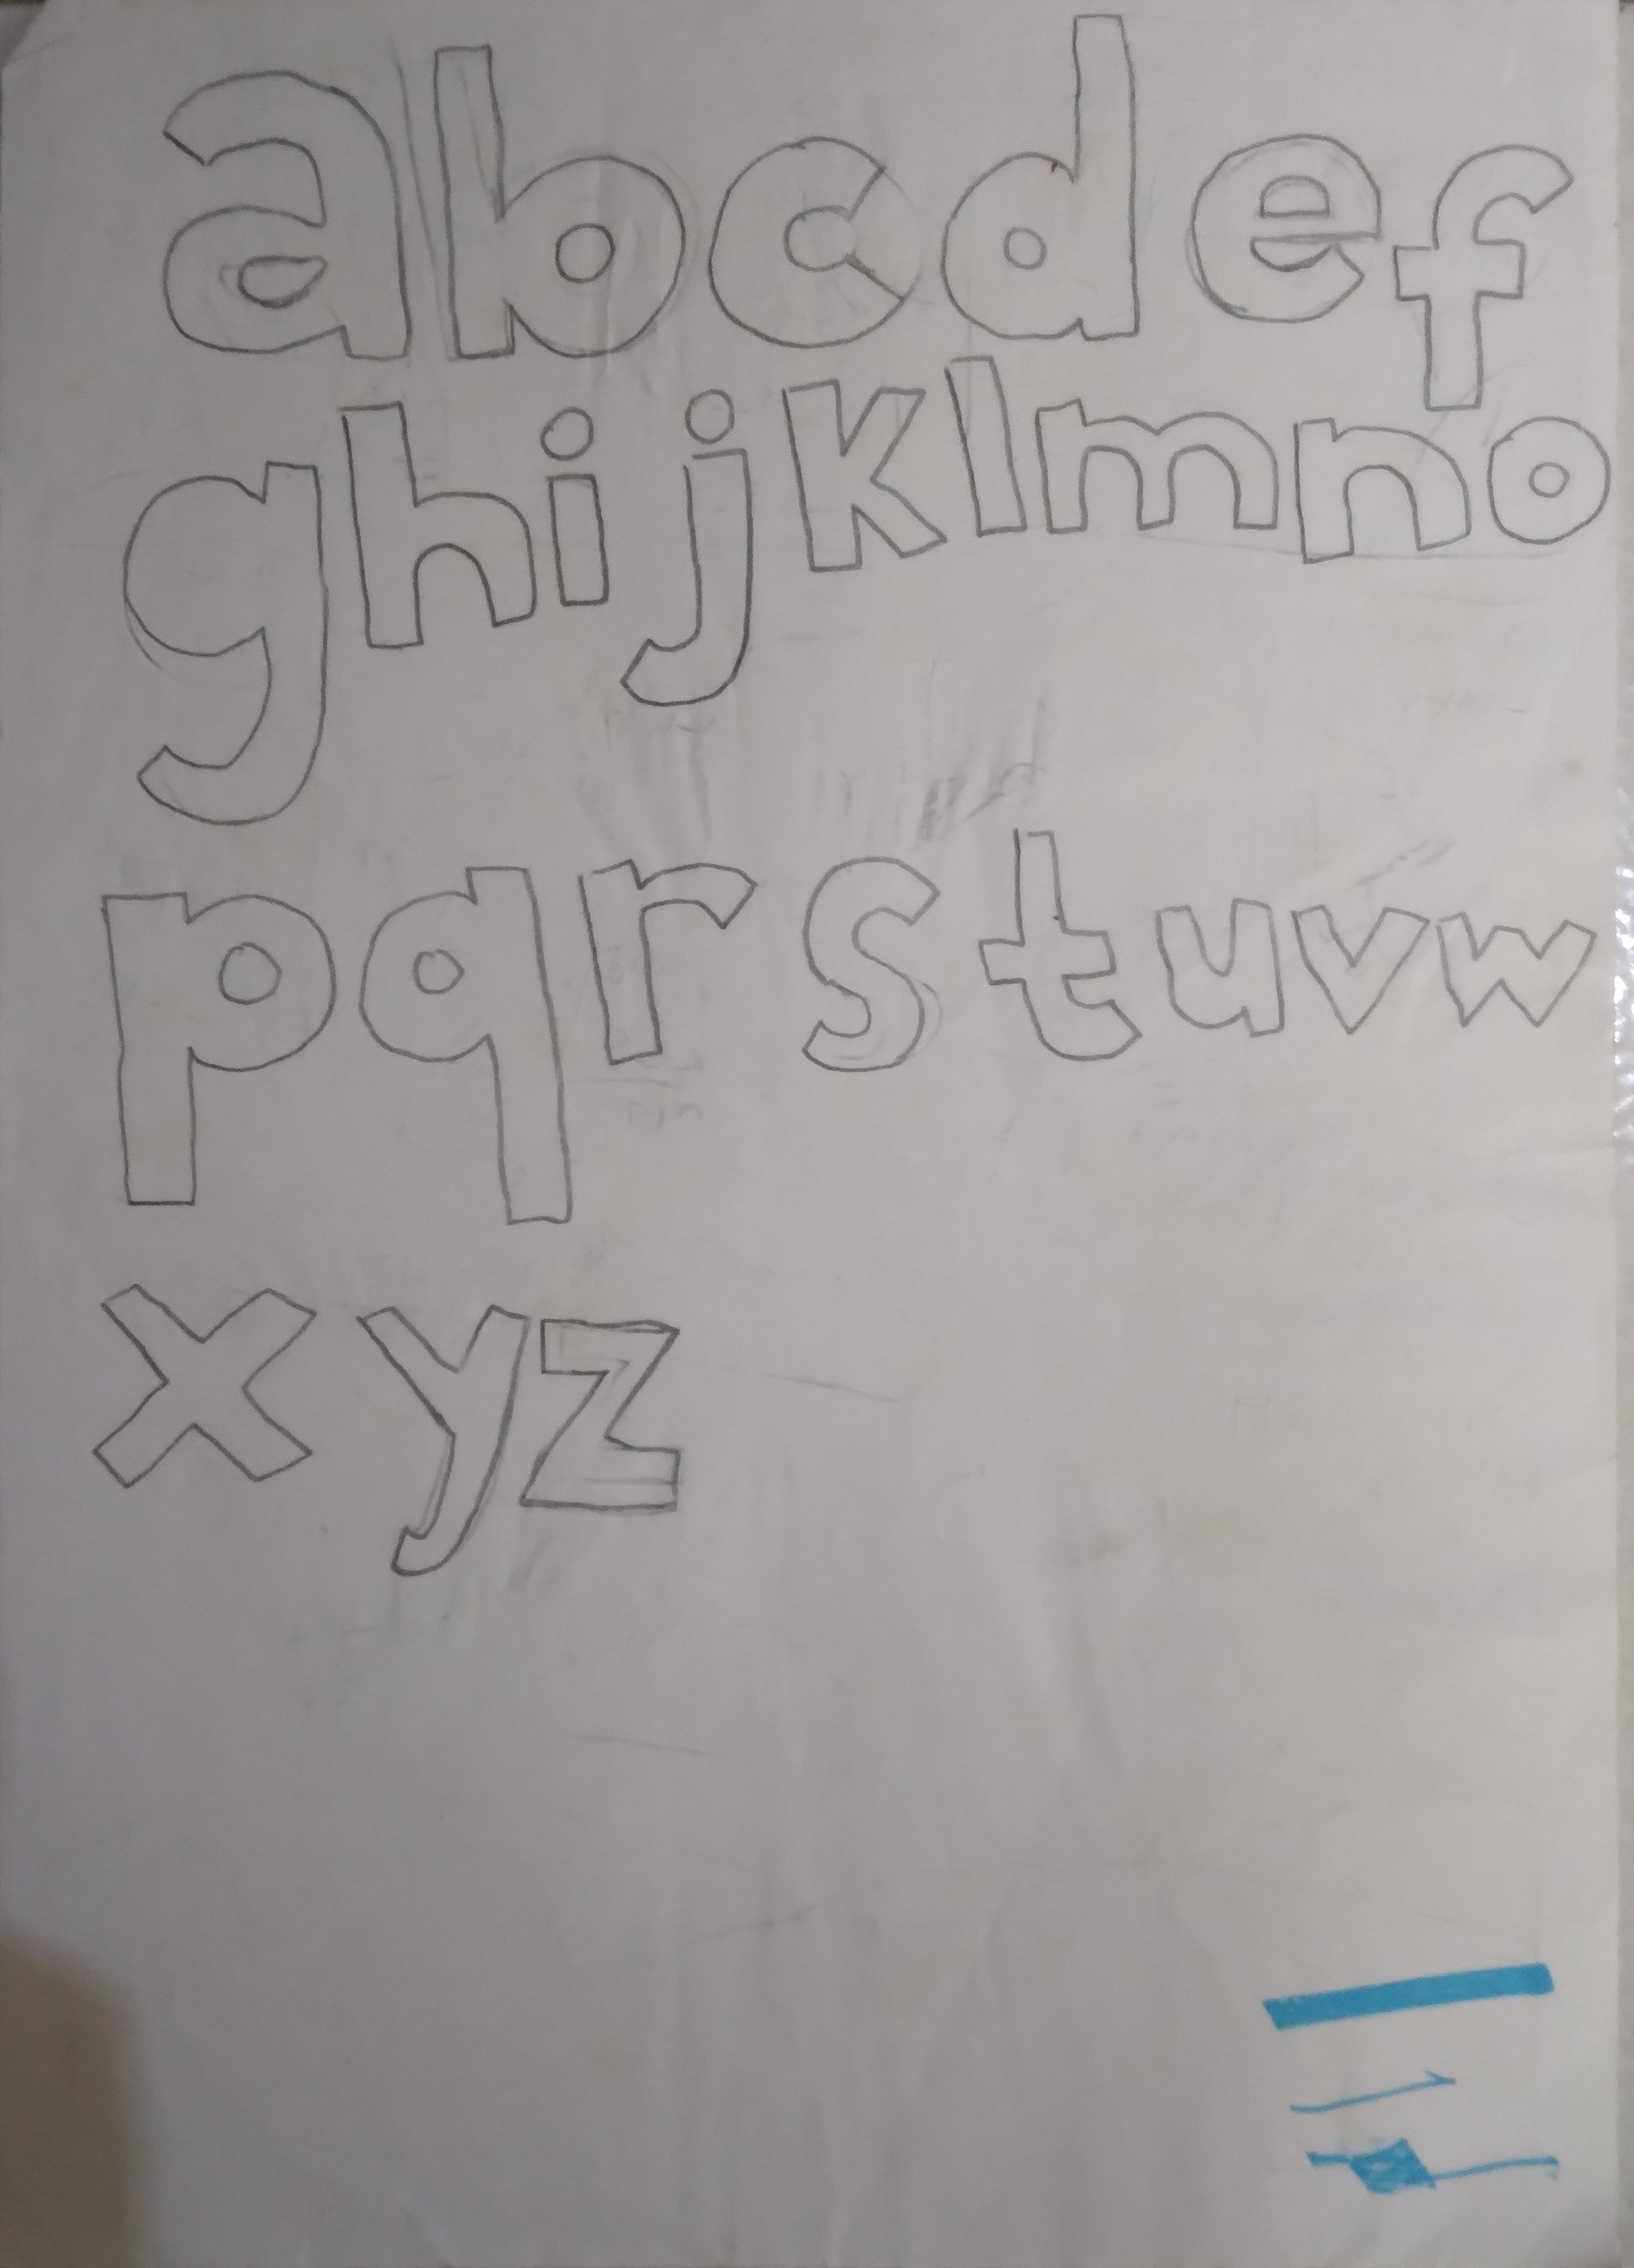 abcdef
ghijklmno
pqrstuvw
xyz